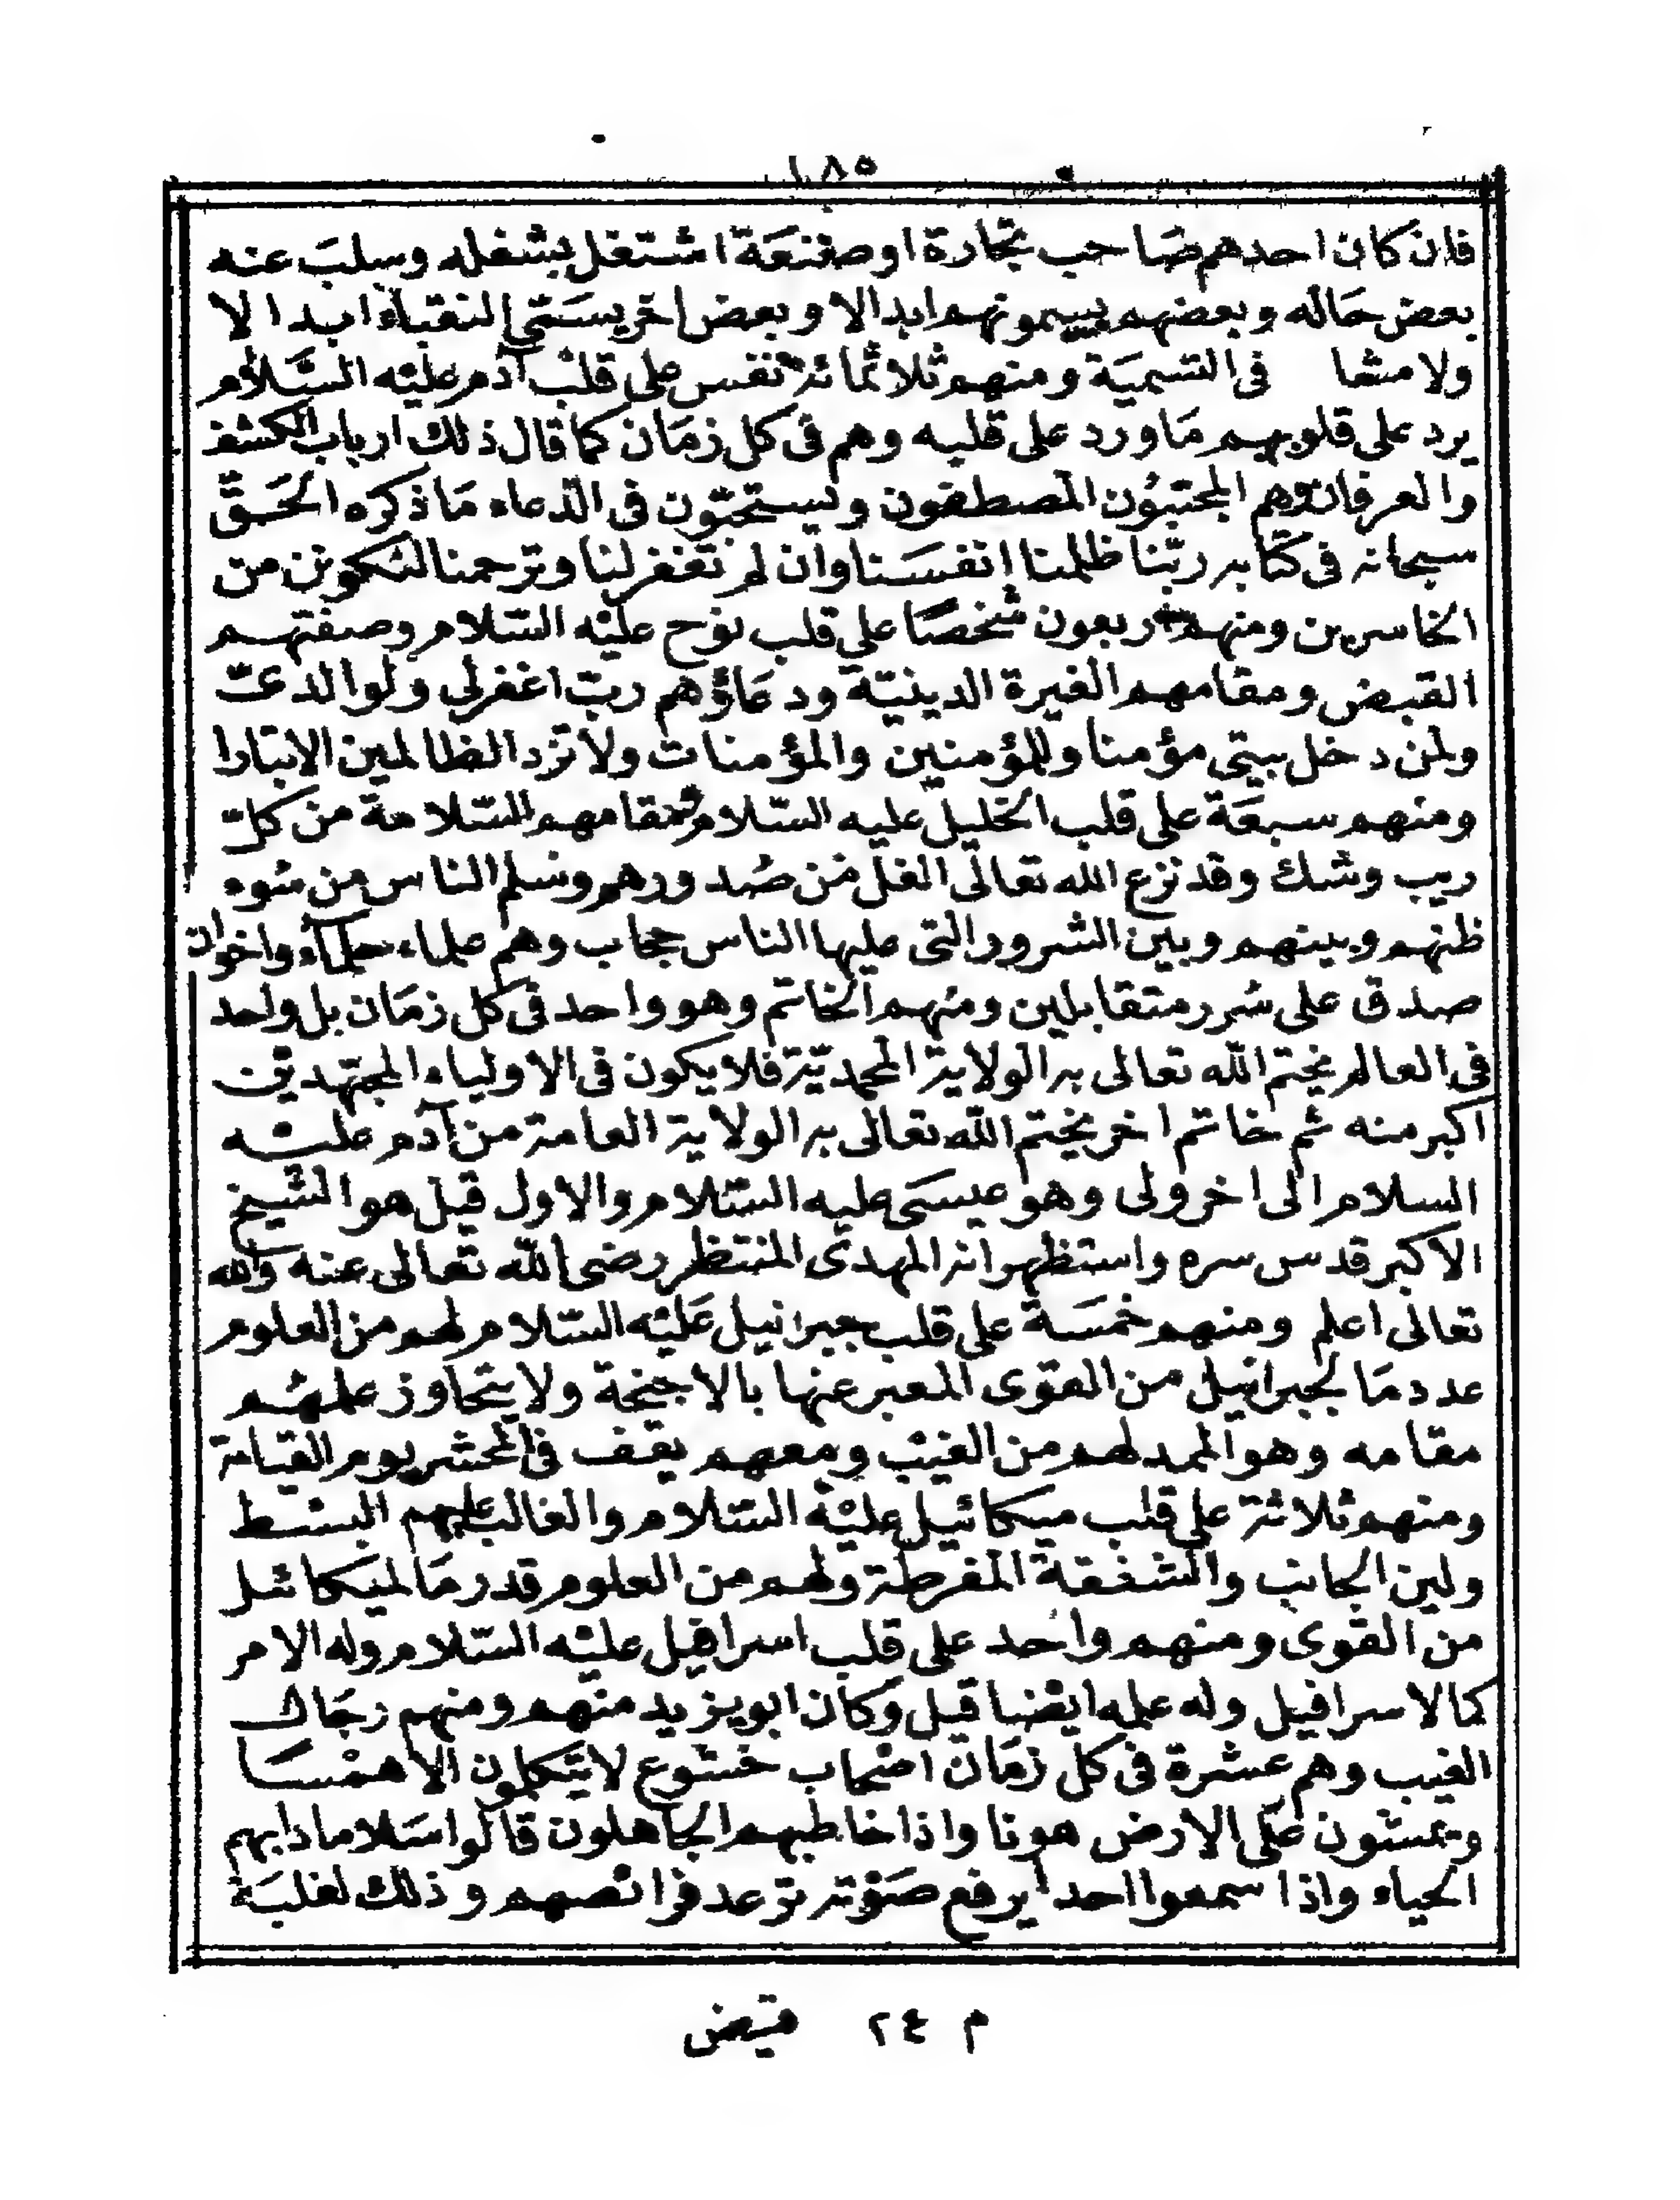 ١٨٥
فان كان احدهم صَاحب تجارة او صنعَة اشتغل بشغله وسلبَ عنه
بعض حَاله وبعضهم يسمونهم ابدالا وبعض اخر يسَمّى النقباء ابدالا
ولا مشا فى التسميَة ومنهم ثلاثمائة نفس على قلب آدم عليْه السَّلام
يرد على قلوبهم مَا ورد على قلبه وهم فى كل زمَان كما قال ذلك ارباب الكشف
والعرفان وهم المجتبوُن المصطفون ويستحبّون فى الدّعاء مَا ذكرَه الحَقّ
سبحانه فى كتابه ربّنا ظلمنا انفسَنا وان لم تغفر لنا وترحمنا لنكونن من
الخاسرين ومنهم اربعون شخصًا على قلب نوح عليْه السّلام وصفتهم
القبض ومقامهم الغيرة الدينيّة ودعَاؤهم ربّ اغفر لى ولوالدىّ
ولمن دخل بيتى مؤمنا وللمؤمنين والمؤمنات ولا تزد الظالمين الا تبارا
ومنهم سبعَة على قلب الخليل عليه السّلام ومقامهم السّلامة من كلّ
ريب وشك وقد نزع الله تعالى الغل من صُدورهم وسلم الناس من سُوء
ظنهم وبينهم وبين الشرور التى عليها الناس حجاب وهم علماء حلماء واخوان
صدق على سُرر متقابلين ومنهم الخاتم وهو واحد فى كل زمَان بل واحد
فى العالم يختم الله تعالى به الولاية المحمديّة فلا يكون فى الاولياء المجتهدين
اكبر منه ثم خاتم اخر يختم الله تعالى به الولاية العامة من آدم عليْه
السلام الى اخر ولى وهو عيسَى عليه السّلام والاول قيل هو الشيخ
الاكبر قدس سره واستظهر انه المهدى المنتظر رضى الله تعالى عنه والله
تعالى اعلم ومنهم خمسَة على قلب جبرائيل عَليْه السّلام لهم من العلوم
عدد مَا لجبرائيل من القوى المعبر عنها بالاجنحة ولا يتجاوز علمهُم
مقامه وهو الممد لهم من الغيْب ومعهم يقف فى المحشر يوم القيامة
ومنهم ثلاثة على قلب ميكائيل عليْه السّلام والغالب عليهم البسْط
ولين الجانب والشفقة المفرطة ولهم من العلوم قدر مَا لميكائيل
من القوى ومنهم واحد على قلب اسرافيل عليْه السّلام وله الامر
كما لاسرافيل وله علمه ايضا قيل وكان ابو يزيد منهم ومنهم رجَال
الغيب وهم عشرة فى كل زمَان اصْحاب خشوع لا يتكلمون الا همْسَا
ويمشون عَلى الارض هونا واذا خاطبهم الجاهلون قالوا سَلاما دابهم
الحياء واذا سمعوا احدا يرفع صَوْته ترعد فرائصهم وذلك لغلبَة
م ٢٤ فيض